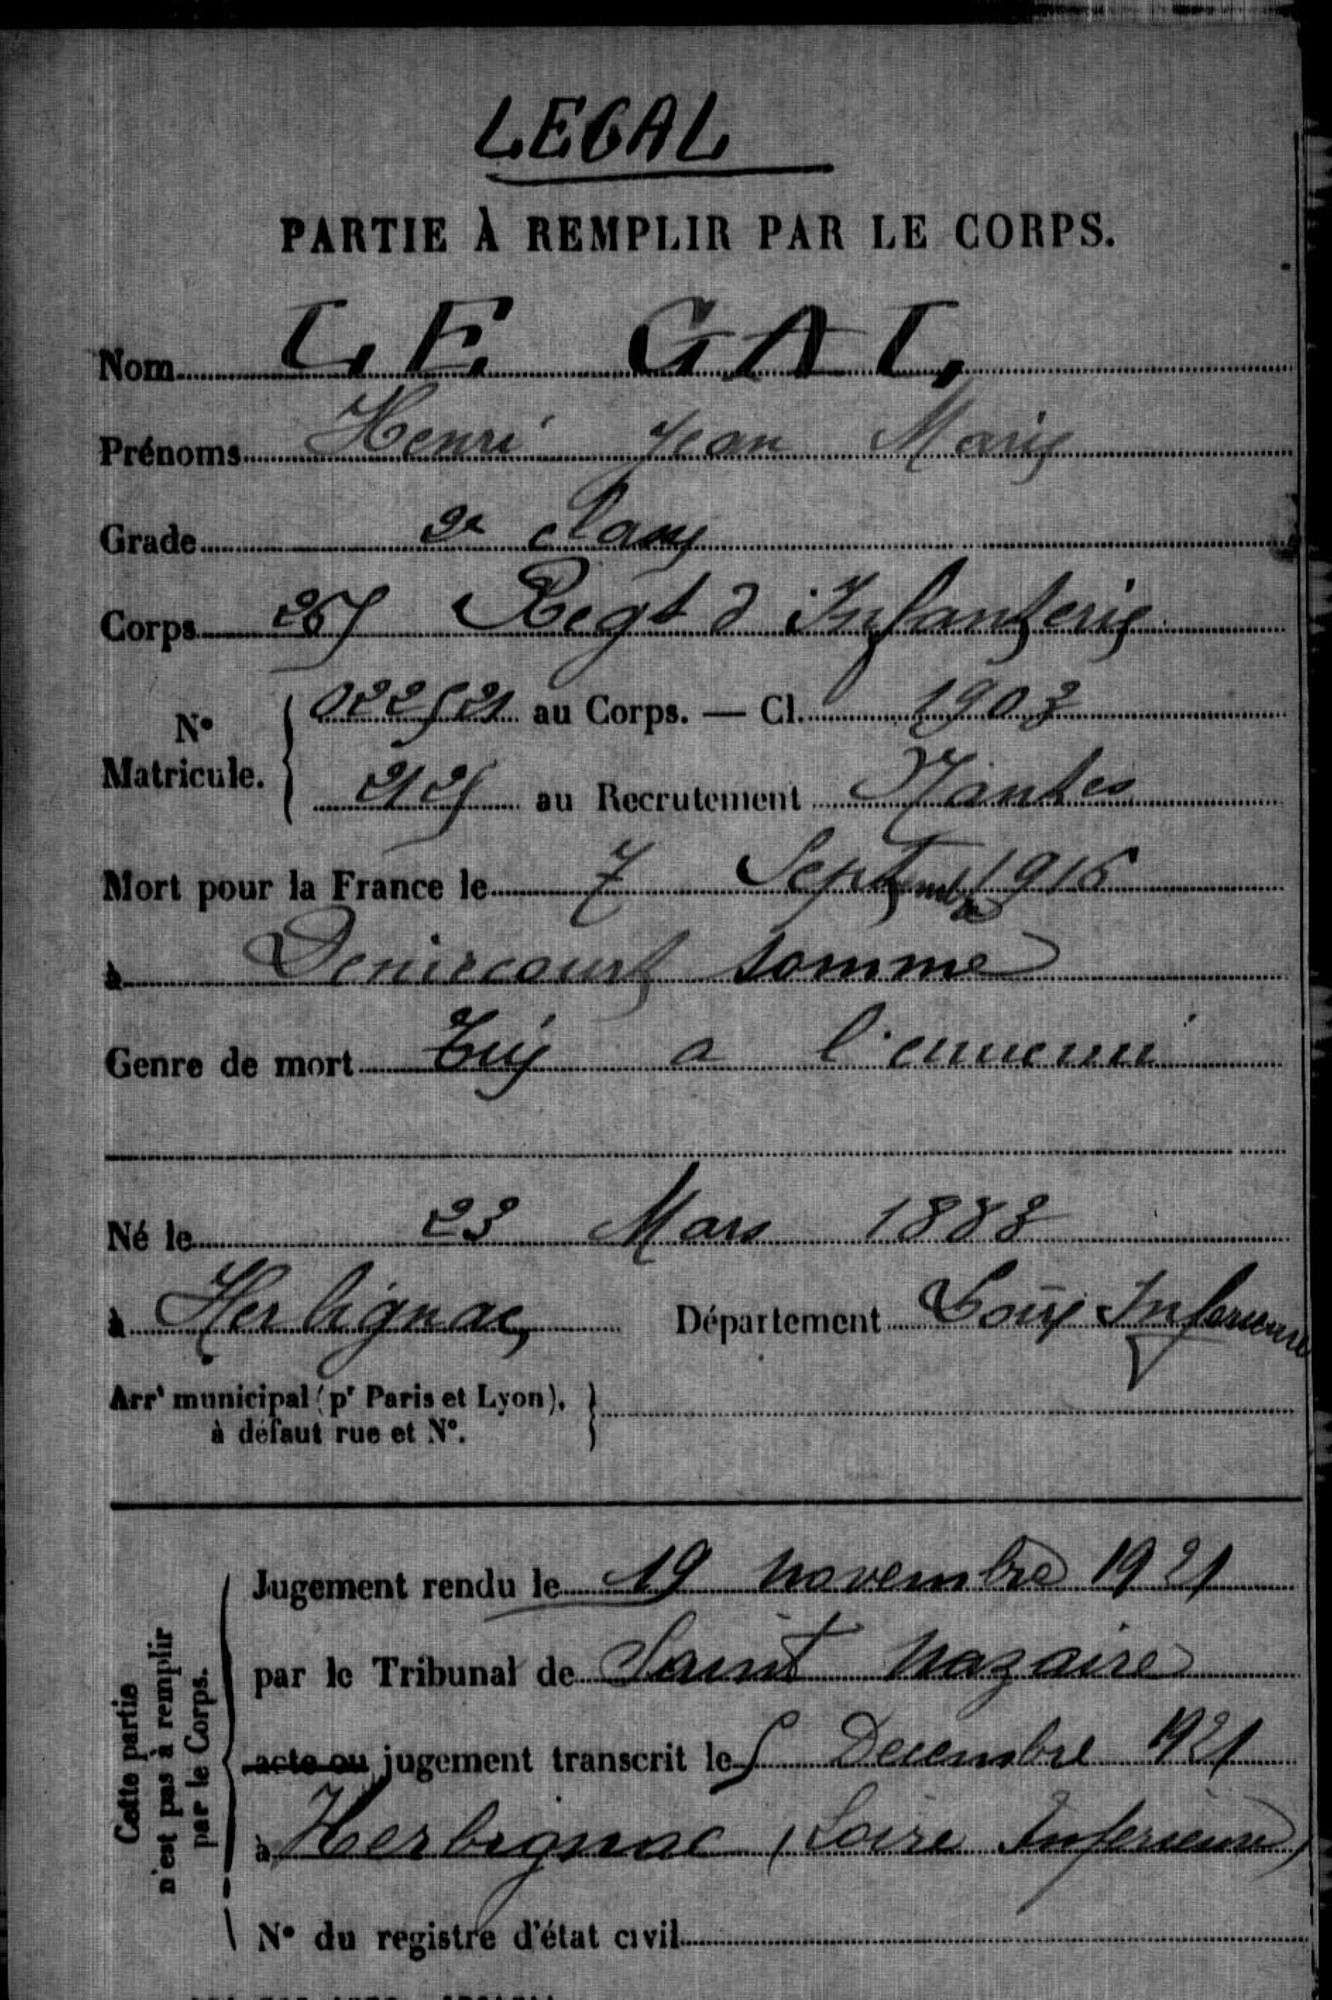 LEGAL
PARTIE À REMPLIR PAR LE CORPS.
Nom LE GAL
Prénoms Henri Jean Marie
Grade 2e classe
Corps 265 Regt d Infanterie
N° Matricule. 022521 au Corps. — Cl. 1903
2125 au Recrutement Nantes
Mort pour la France le 7 Septembre 1916
à Deniecourt Somme
Genre de mort Tué a l'ennemi
Né le 23 Mars 1883
à Herbignac Département Loire Inferieure
Arrt municipal (pr Paris et Lyon),
à défaut rue et N°.
Cette partie
n'est pas à remplir
par le Corps.
Jugement rendu le 19 novembre 1921
par le Tribunal de Saint Nazaire
acte ou jugement transcrit le 5 Decembre 1921
à Herbignac (Loire Inferieure)
N° du registre d'état civil